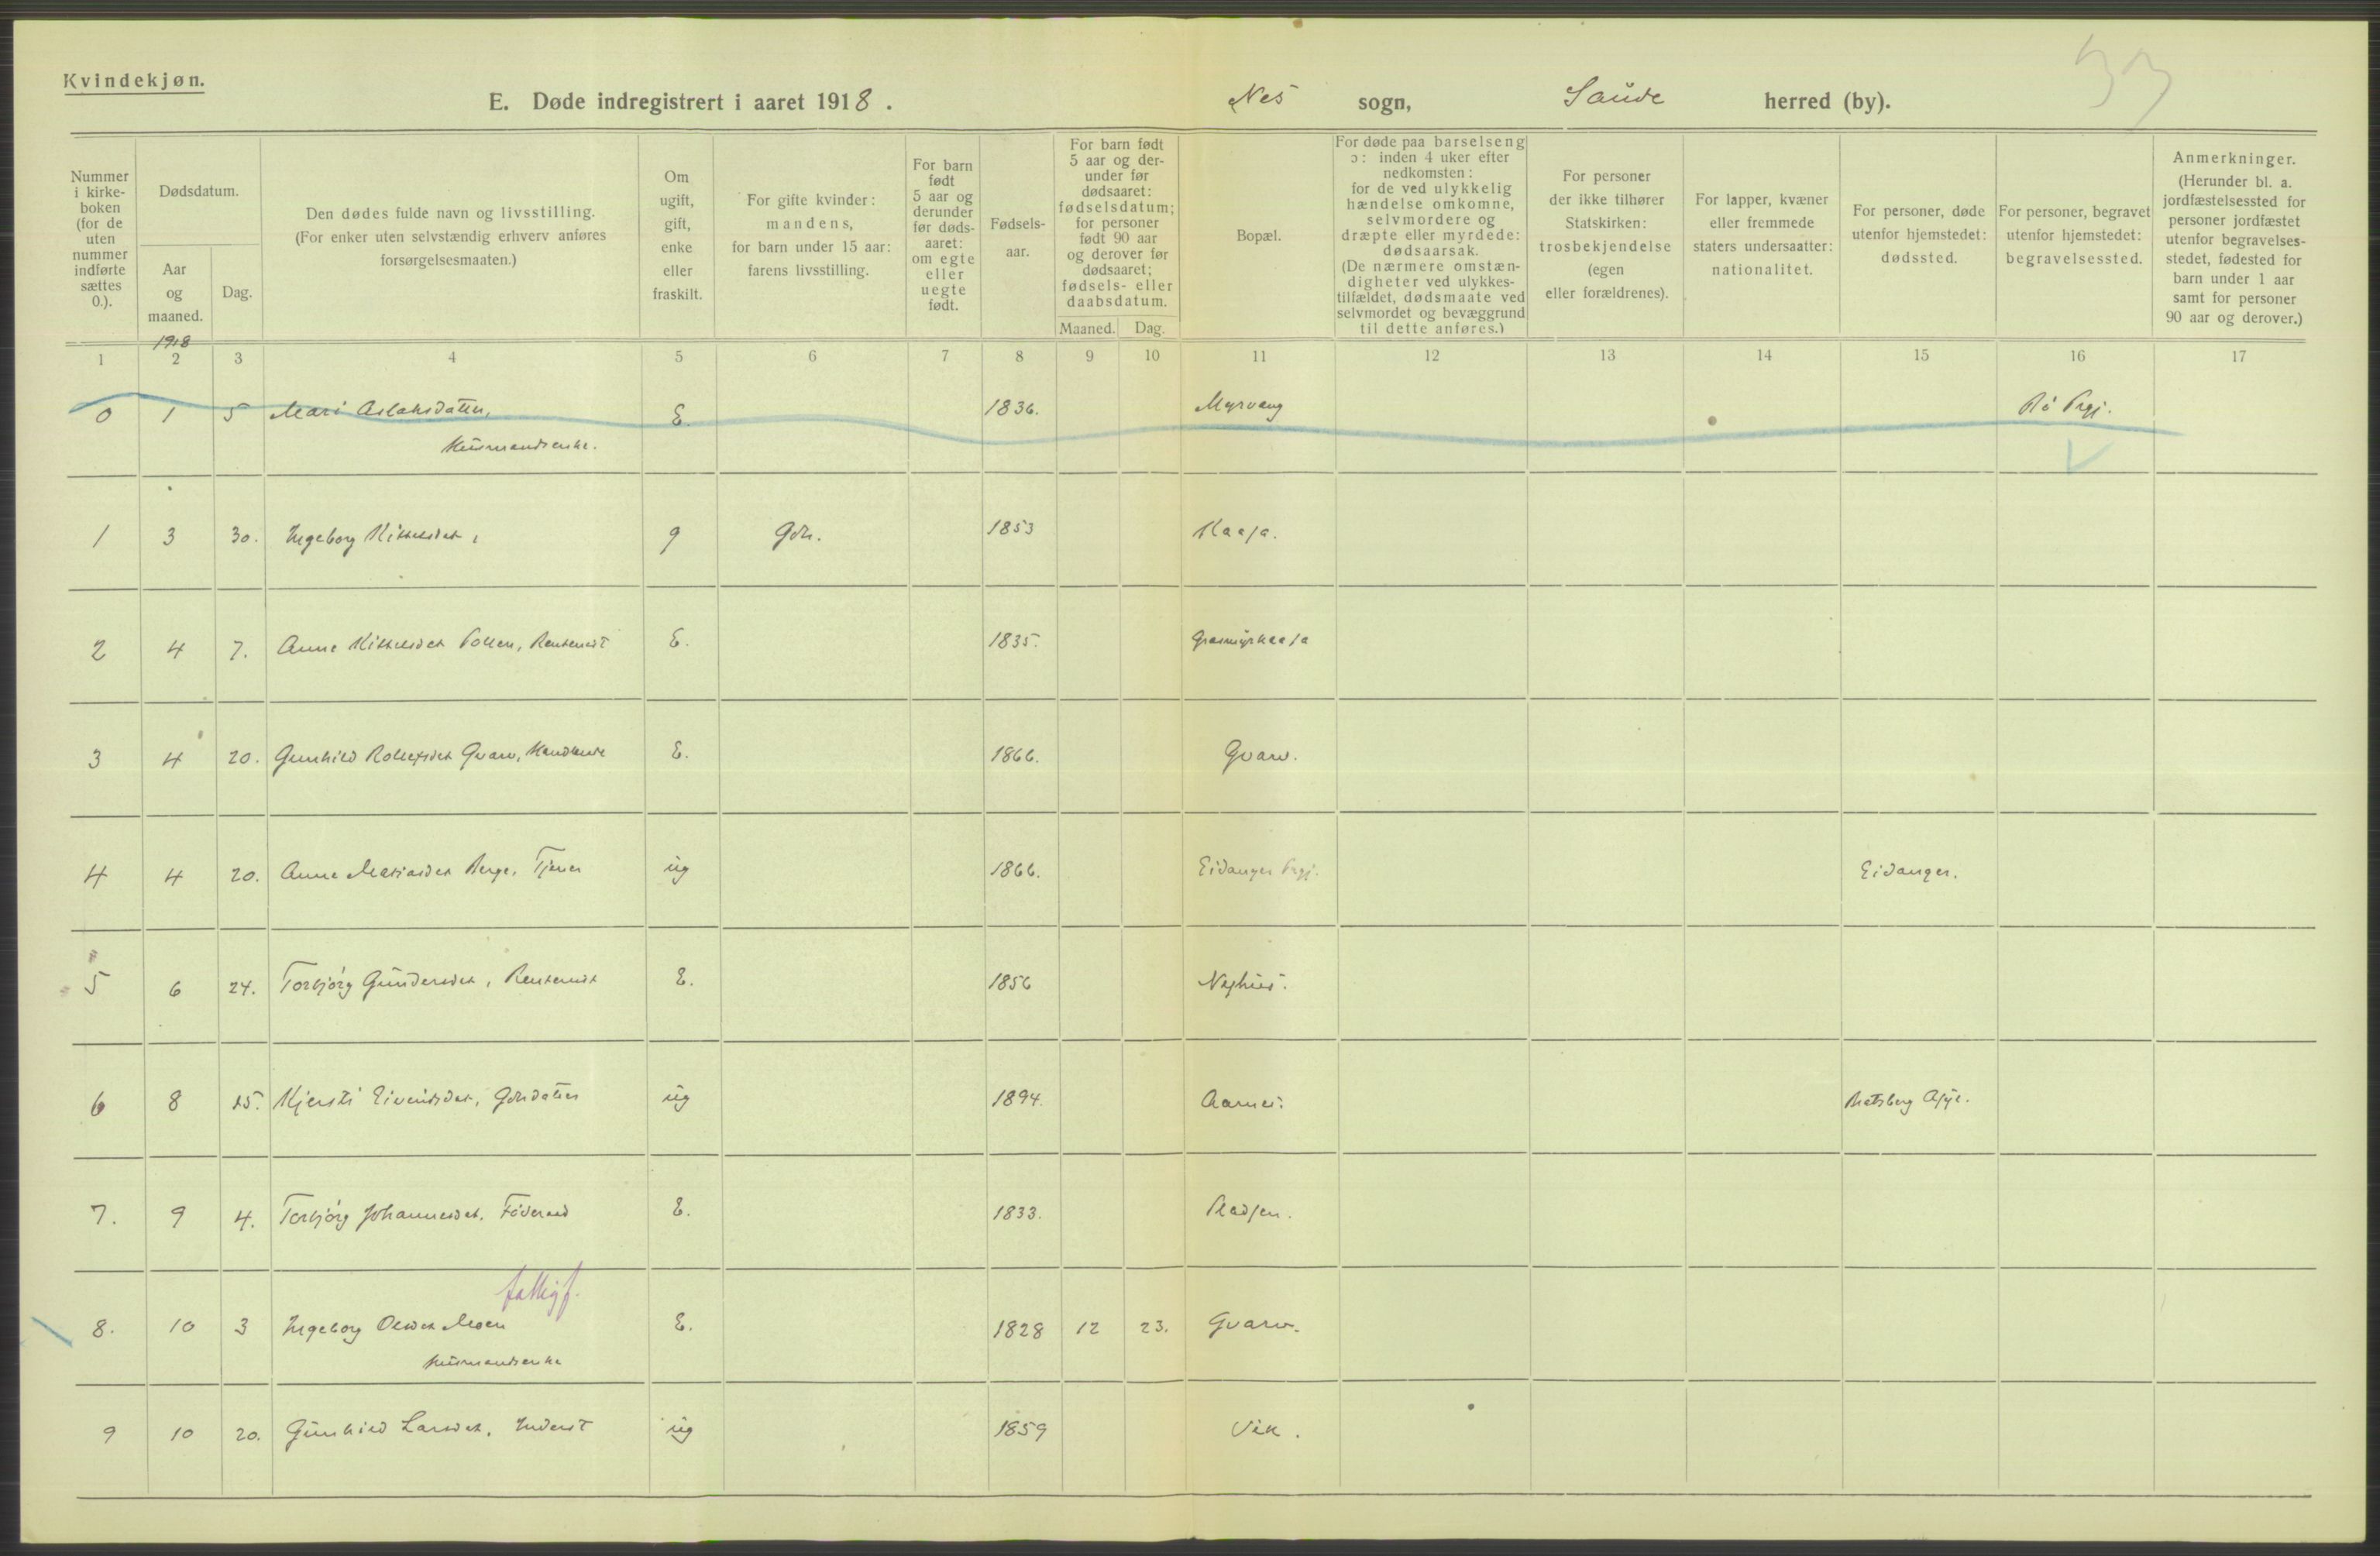 Kvindekjøn.
33
E. Døde indregistrert i aaret 1918.
Nes sogn, Saude herred (by).
Nummer i kirkeboken (for de uten nummer indførte sættes 0.).
Dødsdatum.
Aar og maaned.
Dag.
Den dødes fulde navn og livsstilling.
(For enker uten selvstændig erhverv anføres forsørgelsesmaaten.)
Om ugift, gift, enke eller fraskilt.
For gifte kvinder: mandens, for barn under 15 aar: farens livsstilling.
For barn født 5 aar og derunder før dødsaaret: om egte eller uegte født.
Fødselsaar.
For barn født 5 aar og derunder før dødsaaret: fødselsdatum; for personer født 90 aar og derover før dødsaaret; fødsels- eller daabsdatum.
Maaned. Dag.
Bopæl.
For døde paa barselseng ɔ: inden 4 uker efter nedkomsten: for de ved ulykkelig hændelse omkomne, selvmordere og dræpte eller myrdede: dødsaarsak. (De nærmere omstændigheter ved ulykkestilfældet, dødsmaate ved selvmordet og bevæggrund til dette anføres.)
For personer der ikke tilhører Statskirken: trosbekjendelse (egen eller forældrenes).
For lapper, kvæner eller fremmede staters undersaatter: nationalitet.
For personer, døde utenfor hjemstedet: dødssted.
For personer, begravet utenfor hjemstedet: begravelsessted.
Anmerkninger.
(Herunder bl. a. jordfæstelsessted for personer jordfæstet utenfor begravelsesstedet, fødested for barn under 1 aar samt for personer 90 aar og derover.)
1918
1 2 3 4 5 6 7 8 9 10 11 12 13 14 15 16 17
0 1 5 Mari Aslaksdatter, E. 1836. Myrvang Bø Prgj.
Husmandsenke.
1 3 30. Ingeborg Kittelsdet, g Gdr. 1853 Kaasa.
2 4 7. Anne Kittelsdet, Rentenist E. 1835. Græsmyrkaasa
3 4 20. Gunhild Rollefsdet Gvarv, E. 1866. Gvarv.
4 4 20. Anne Mathiasdet Berge, Tjener ug 1866. Eidanger Prgj. Eidanger.
5 6 24. Torbjørg Gundersdet, Rentenist E. 1856 Neshus.
6 8 15. Kjersti Eivindsdet, Gdrdatter ug 1894. Aarnes. Bratsberg Asyl.
7. 9 4. Torbjørg Johannesdet, Føderaad E. 1833. Pladsen.
fattigf.
8. 10 3 Ingeborg Olesdet Moen E. 1828 12 23. Gvarv.
Husmandsenke
9 10 20. Gunhild Larsdet, Inderst ug 1859 Vik.